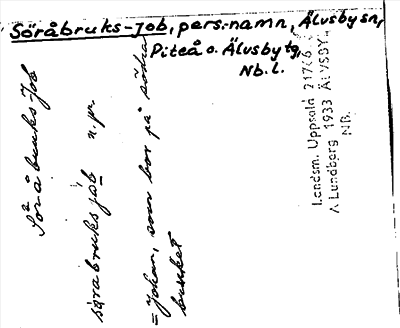 Söråbruks-Job, pers.-namn, Älvsby sn,
Piteå o. Älvsby tg,
Nb. l.
Söråbruks-Job
söråbruks jòb n. pr.
= Johan, som bor på södra
bruket
Lendsm. Uppsala 217(6
A Lundberg 1933 ÄLVSBY
NB.